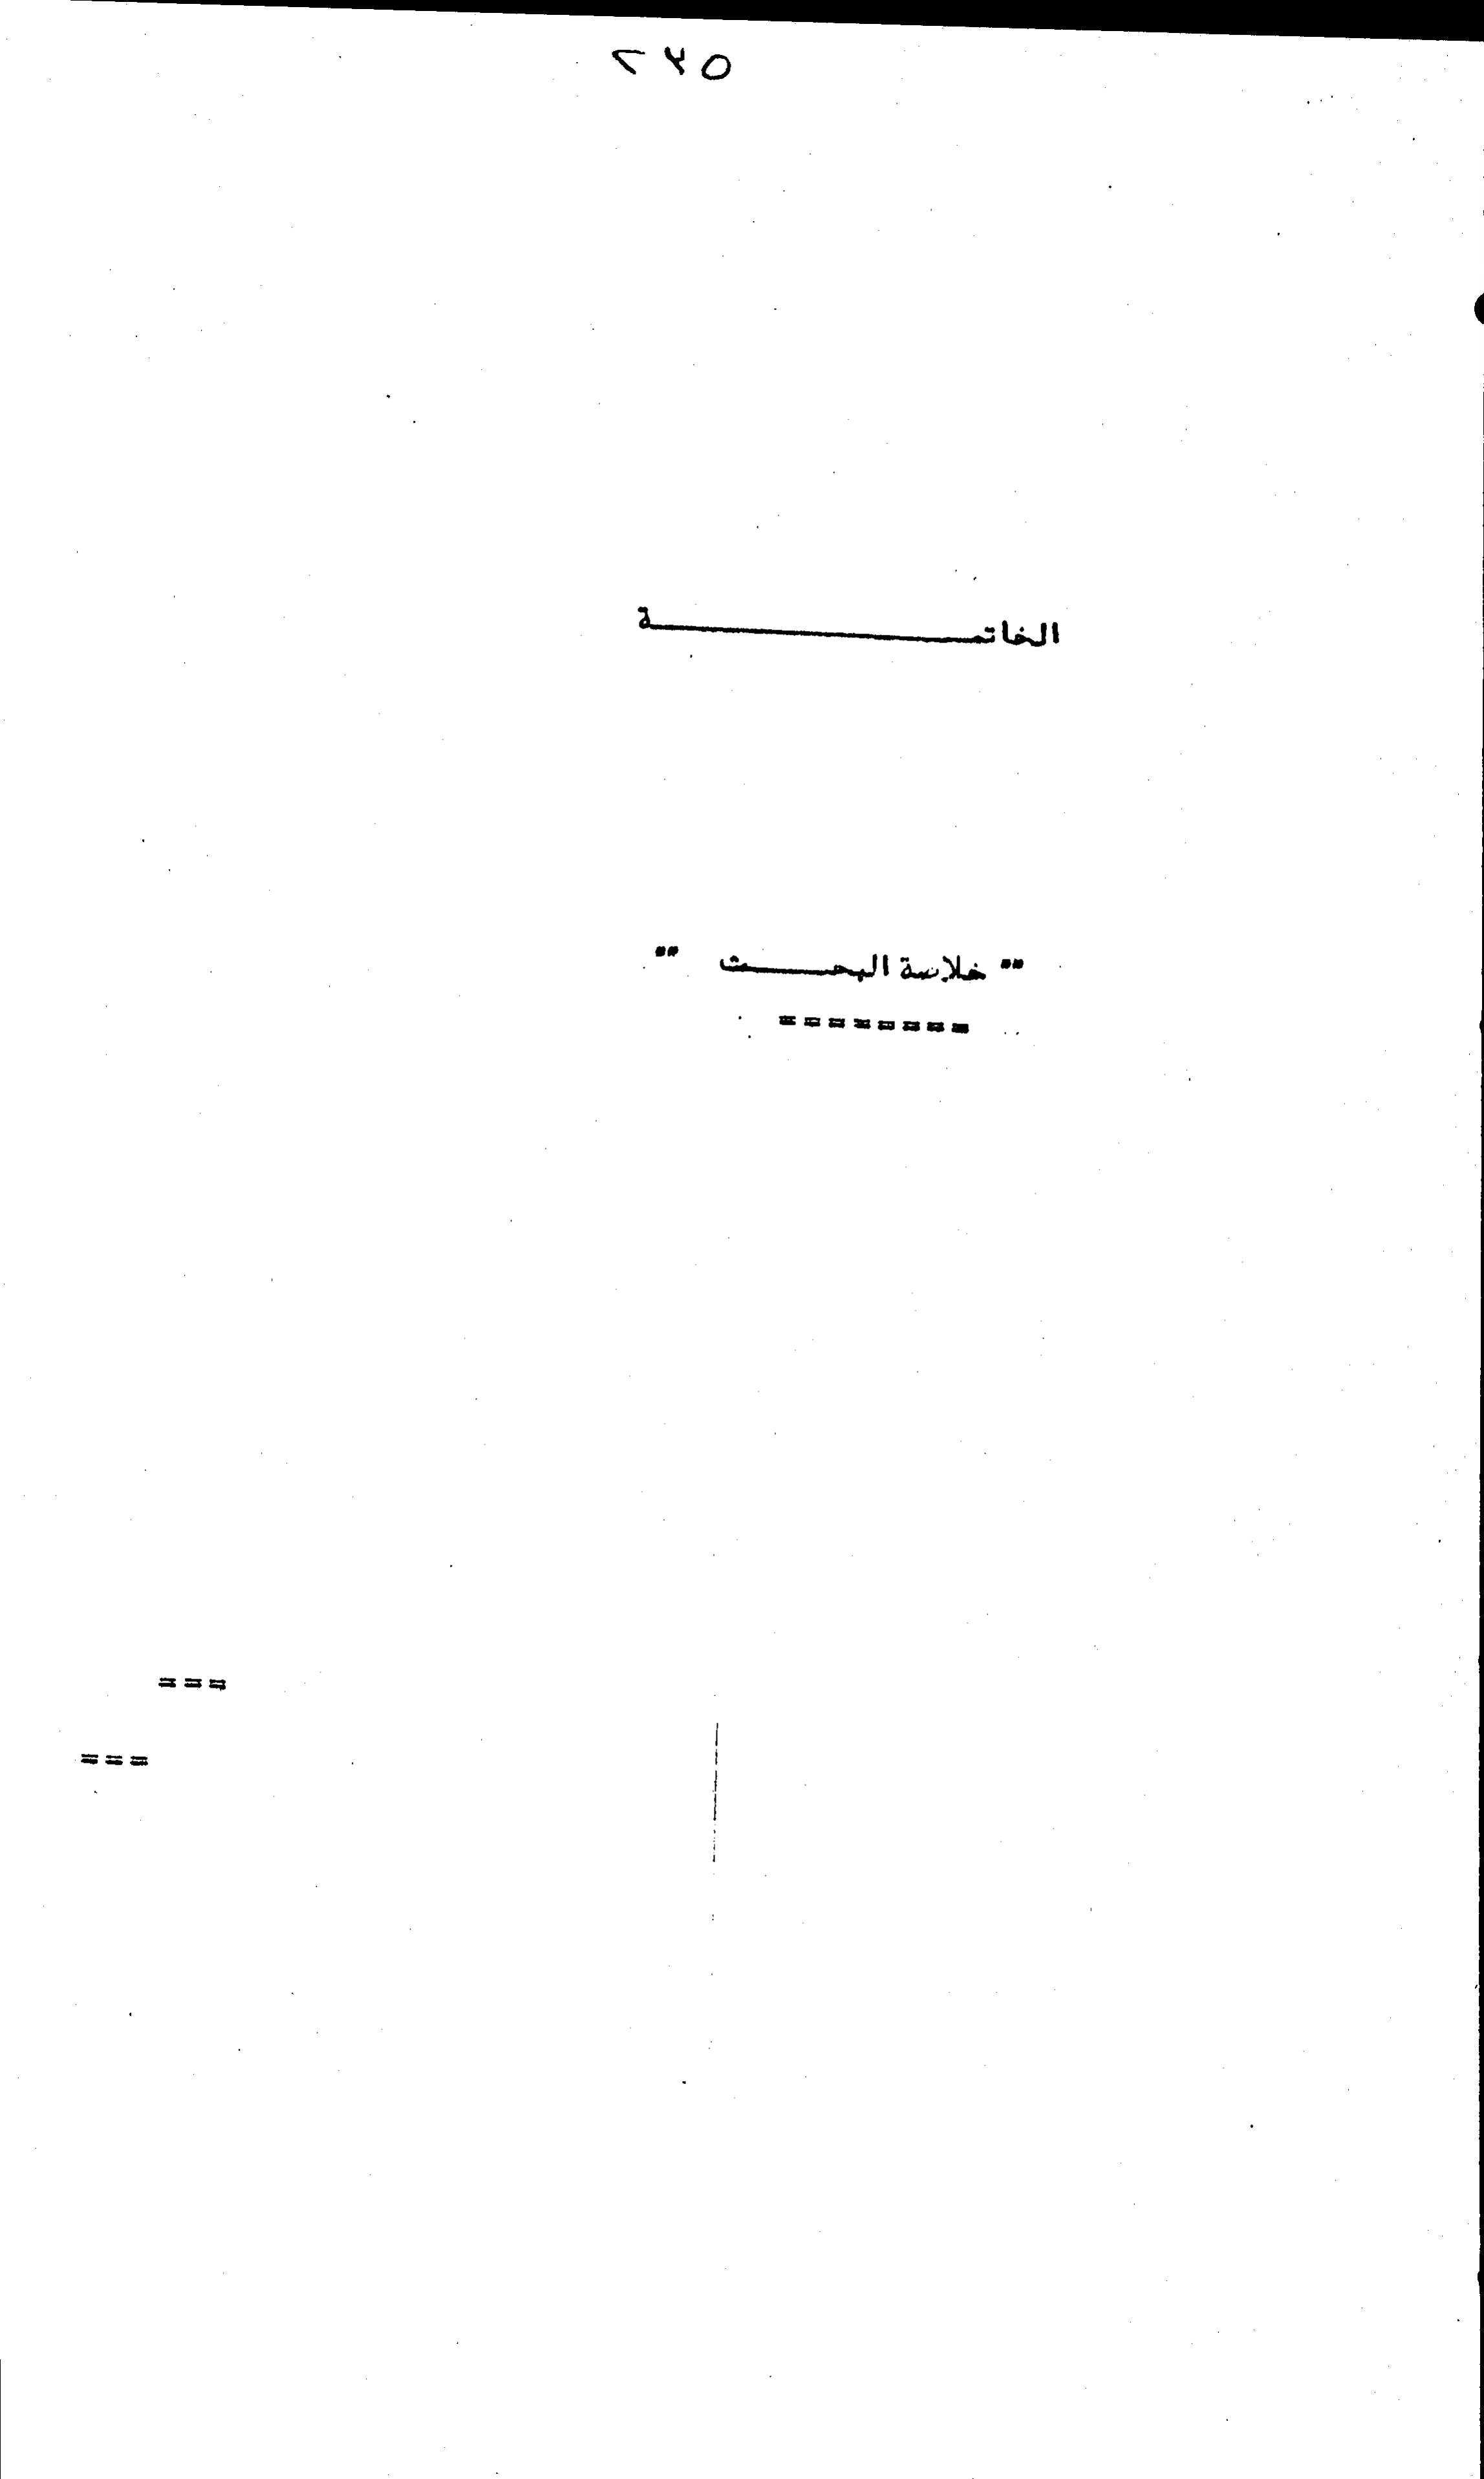 ٢٣٥
الخاتمـــــــــــــــــــة
"" خلاصة البحــــــث ""
========
===
===